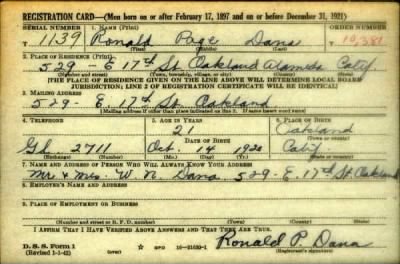 REGISTRATION CARD—(Men born on or after February 17, 1897 and on or before December 31, 1921)
SERIAL NUMBER 1. NAME (Print) ORDER NUMBER
T 1139 Ronald Page Dana 10,381
(First) (Middle) (Last)
2. PLACE OF RESIDENCE (Print)
529 - E 17th St. Oakland Alameda Calif
(Number and street) (Town, township, village, or city) (County) (State)
[THE PLACE OF RESIDENCE GIVEN ON THE LINE ABOVE WILL DETERMINE LOCAL BOARD
JURISDICTION; LINE 2 OF REGISTRATION CERTIFICATE WILL BE IDENTICAL]
3. MAILING ADDRESS
529 - E. 17th St. Oakland
[Mailing address if other than place indicated on line 2. If same insert word same]
4. TELEPHONE 5. AGE IN YEARS 6. PLACE OF BIRTH
21 Oakland
DATE OF BIRTH (Town or county)
Gl 2711 Oct. 14 1920 Calif
(Exchange) (Number) (Mo.) (Day) (Yr.) (State or country)
7. NAME AND ADDRESS OF PERSON WHO WILL ALWAYS KNOW YOUR ADDRESS
Mr & Mrs. W. N. Dana, 529 - E. 17th St. Oakland
8. EMPLOYER'S NAME AND ADDRESS
9. PLACE OF EMPLOYMENT OR BUSINESS
(Number and street or R. F. D. number) (Town) (County) (State)
I AFFIRM THAT I HAVE VERIFIED ABOVE ANSWERS AND THAT THEY ARE TRUE.
D. S. S. Form 1 GPO 16—21630-1 Ronald P. Dana
(Revised 1-1-42) (Registrant's signature)